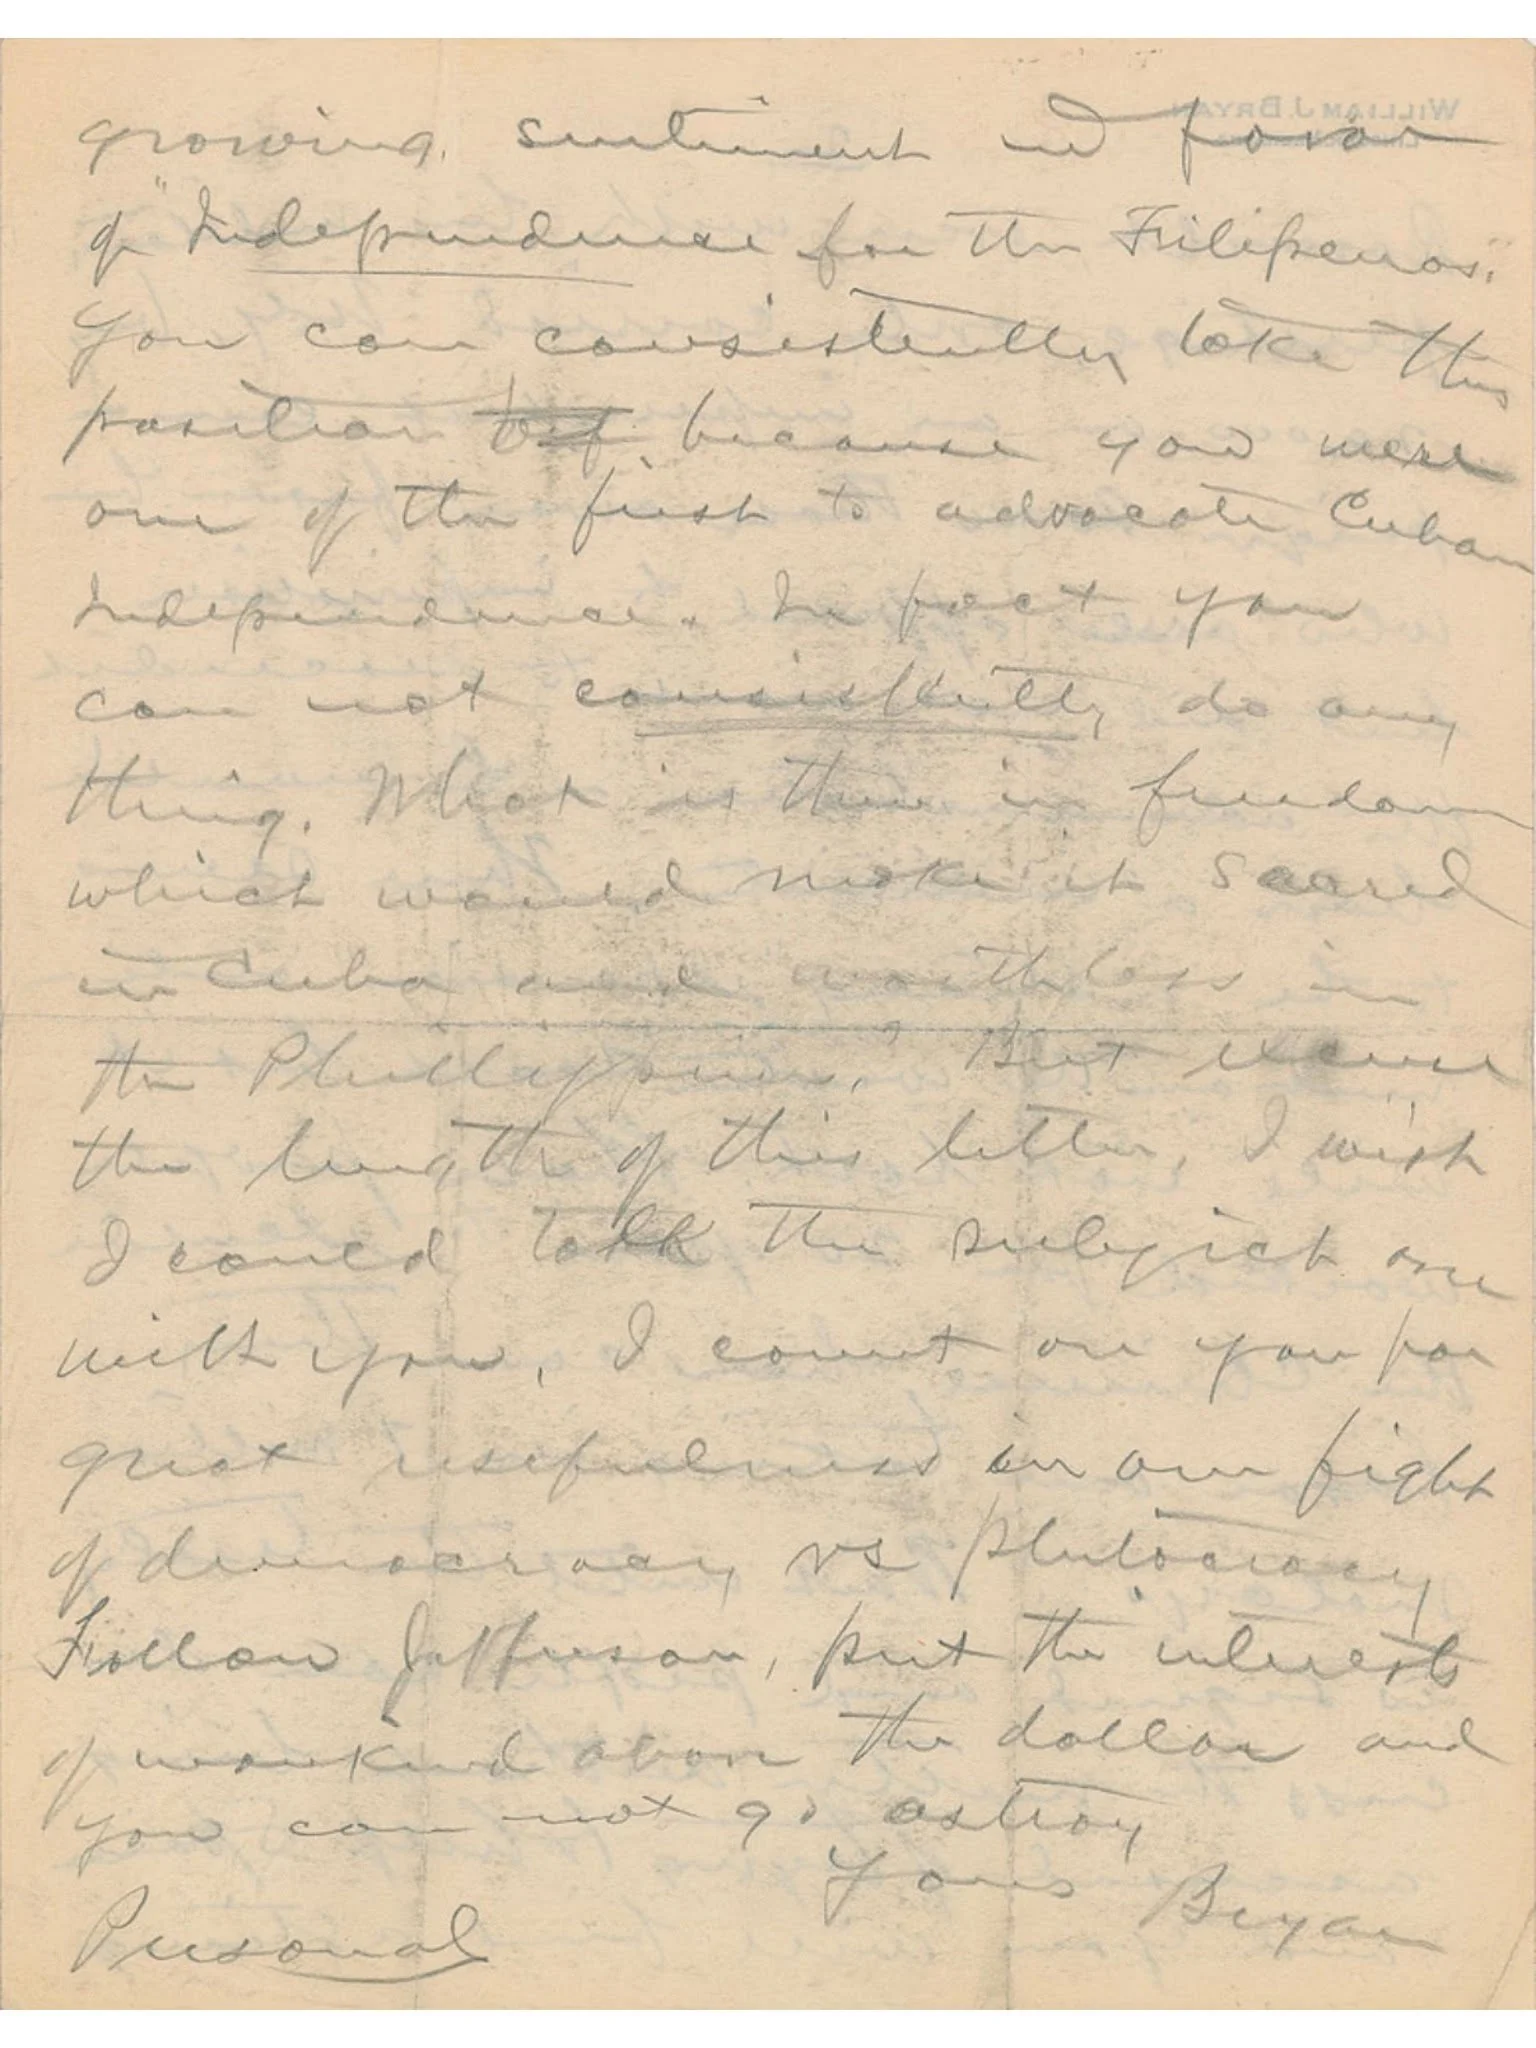 growing sentiment in favor
of "Independence for the Filipenos."
You can consistently take this
position because you were
one of the first to advocate Cuban
Independence. In fact you
can not consistently do any
thing. What is there in freedom
which would make it sacred
in Cuba and worthless in
the Phillippines? But excuse
the length of this letter, I wish
I could talk the subject over
with you, I count on you for
great usefulness in our fight
of democracy vs plutocracy
Follow Jefferson, put the interests
of mankind above the dollar and
you can not go astray
Yours Bryan
Personal
WILLIAM J. BRYAN